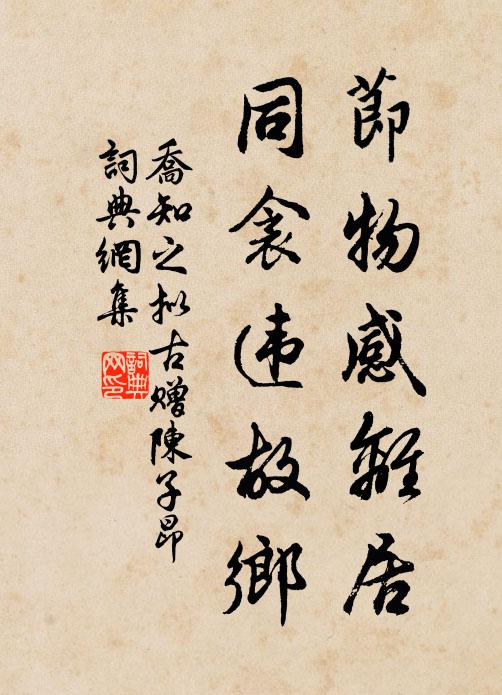 節物感離居
同衾违故鄉
喬知之拟古赠陳子昂
詞典網集
詞典网印